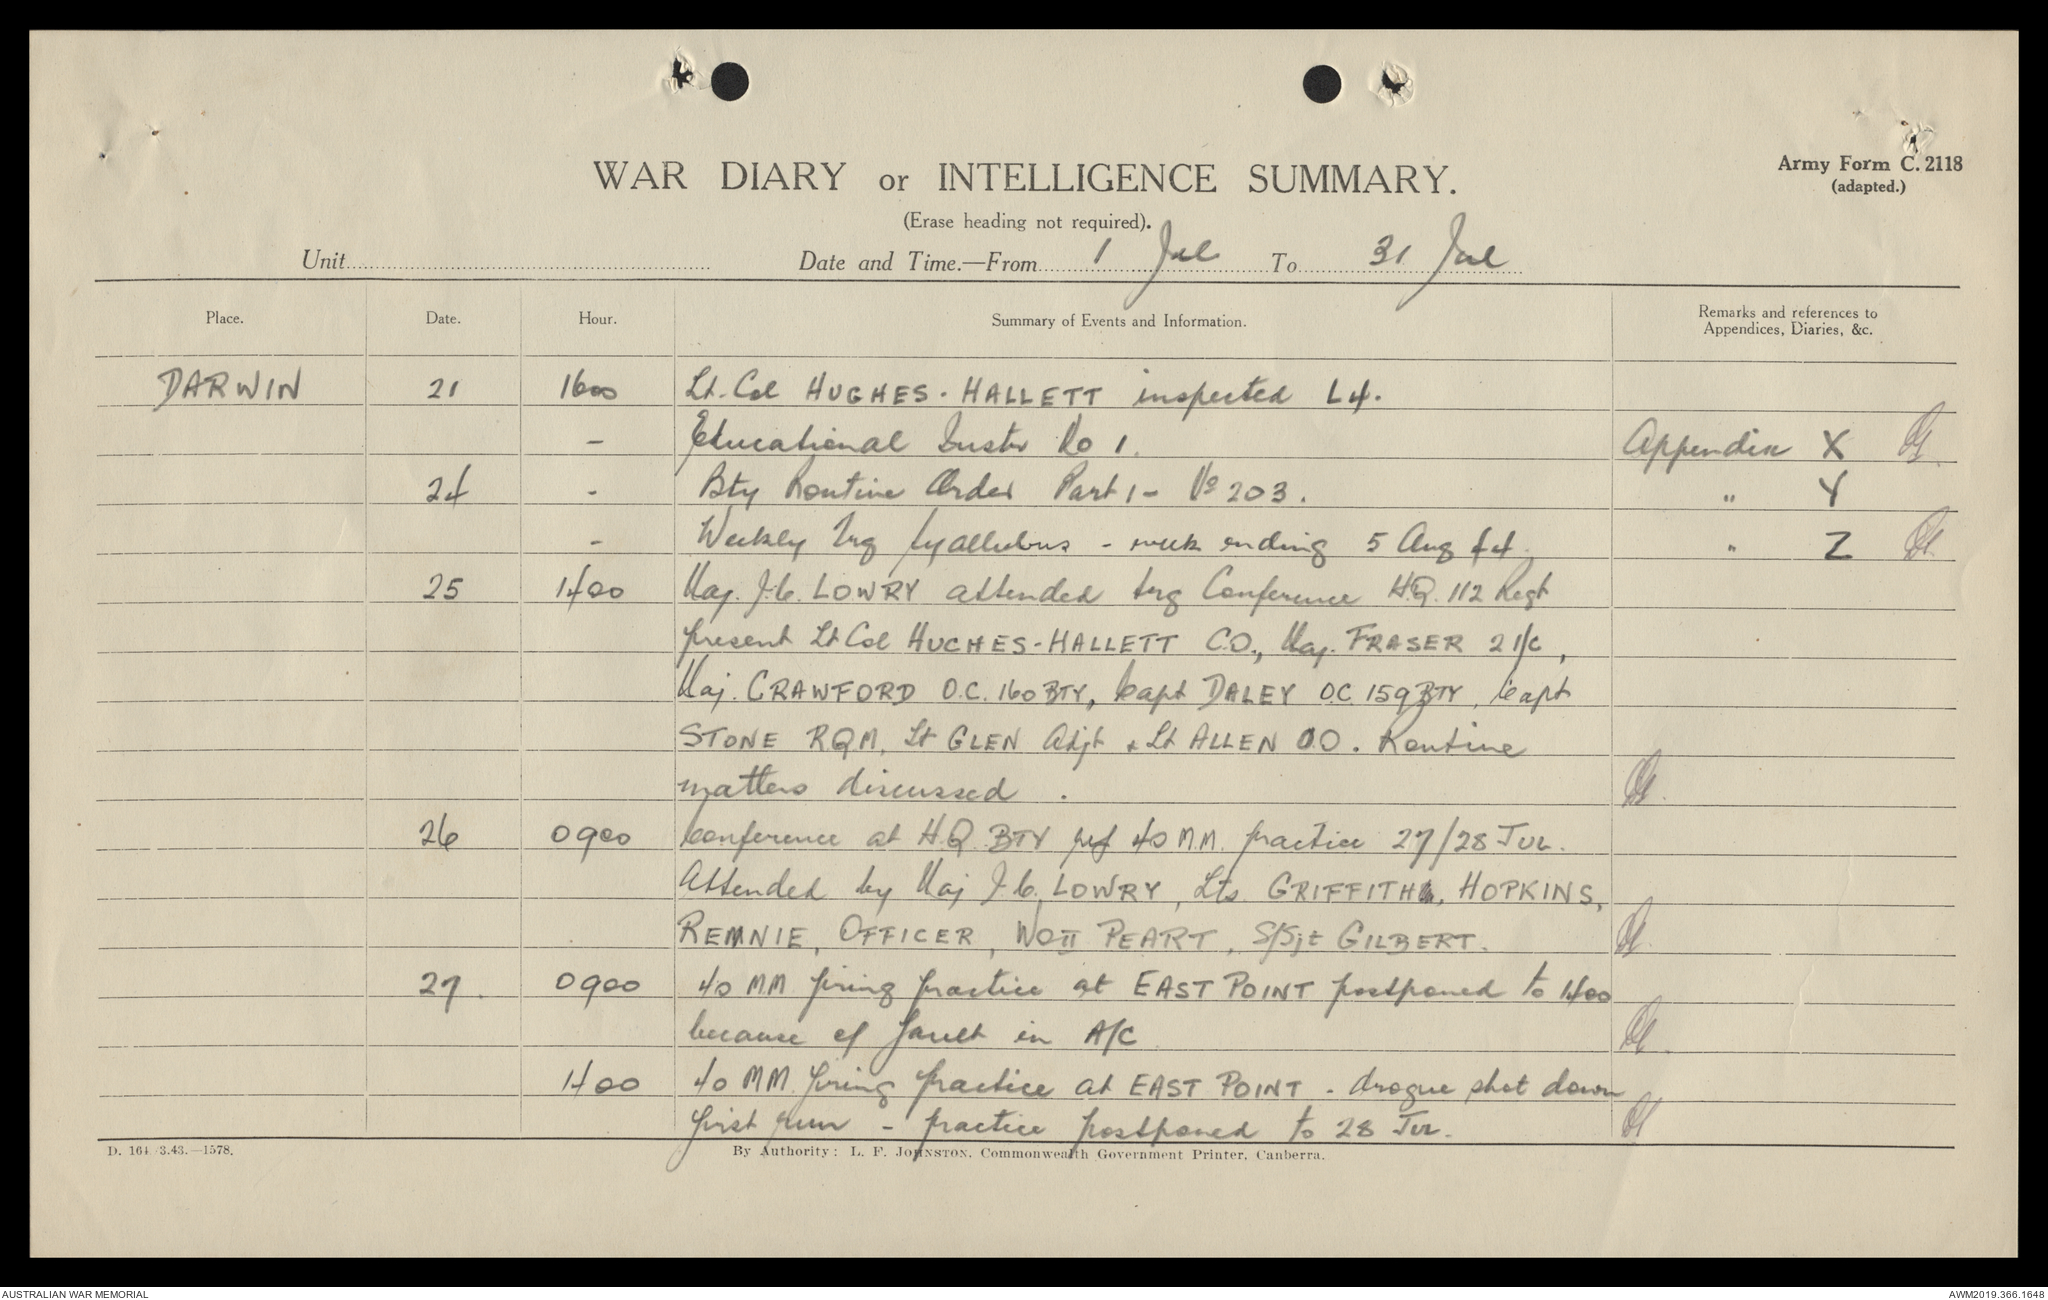 WAR DIARY or INTELLIGENCE SUMMARY.
Army Form C. 2118
(adapted.)
(Erase heading not required).
Unit Date and Time.—From 1 Jul To 31 Jul
Place. Date. Hour. Summary of Events and Information. Remarks and references to
Appendices, Diaries, &c.
DARWIN 21 1600 Lt. Col HUGHES-HALLETT inspected L4.
- Educational Instr No 1. Appendix X
24 - Bty Routine Order Part 1 - No 203. " Y
- Weekly Trg Syallubus - week ending 5 Aug 44. " Z
25 1400 Maj. J.C. LOWRY attended trg Conference H.Q. 112 Regt
present Lt Col HUGHES-HALLETT C.O., Maj. FRASER 2 I/C,
Maj. CRAWFORD O.C. 160 BTY, Capt DALEY O.C 159 BTY, Capt
STONE RQM, Lt GLEN Adjt + Lt ALLEN O.O. Routine
matters discussed.
26 0900 Conference at H.Q. BTY ref 40 M.M. practice 27/28 JUL.
Attended by Maj J.C. LOWRY, Lts. GRIFFITH, HOPKINS,
REMNIE, OFFICER, WOII PEART, S/Sjt GILBERT.
27. 0900 40 MM firing practice at EAST POINT postponed to 1400
because of fault in A/C
1400 40 MM. firing practice at EAST POINT - drogue shot down
first run - practice postponed to 28 JUL.
D. 164/3.43.—1578. By Authority: L. F. JOHNSTON, Commonwealth Government Printer, Canberra.
AUSTRALIAN WAR MEMORIAL AWM2019.366.1648